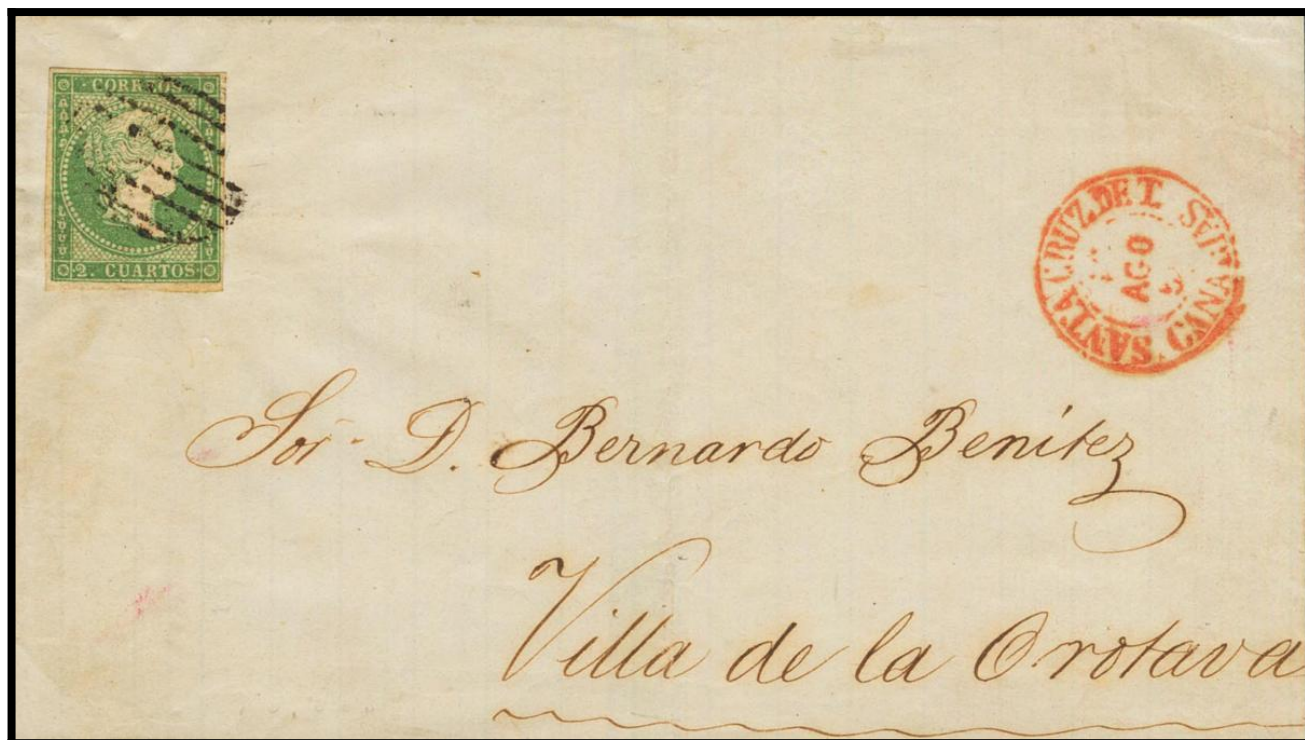 CORREOS
2. CUARTOS
SANTA CRUZ DE T. CANARIAS.
AGO
Sor. D. Bernardo Benítez
Villa de la Orotava